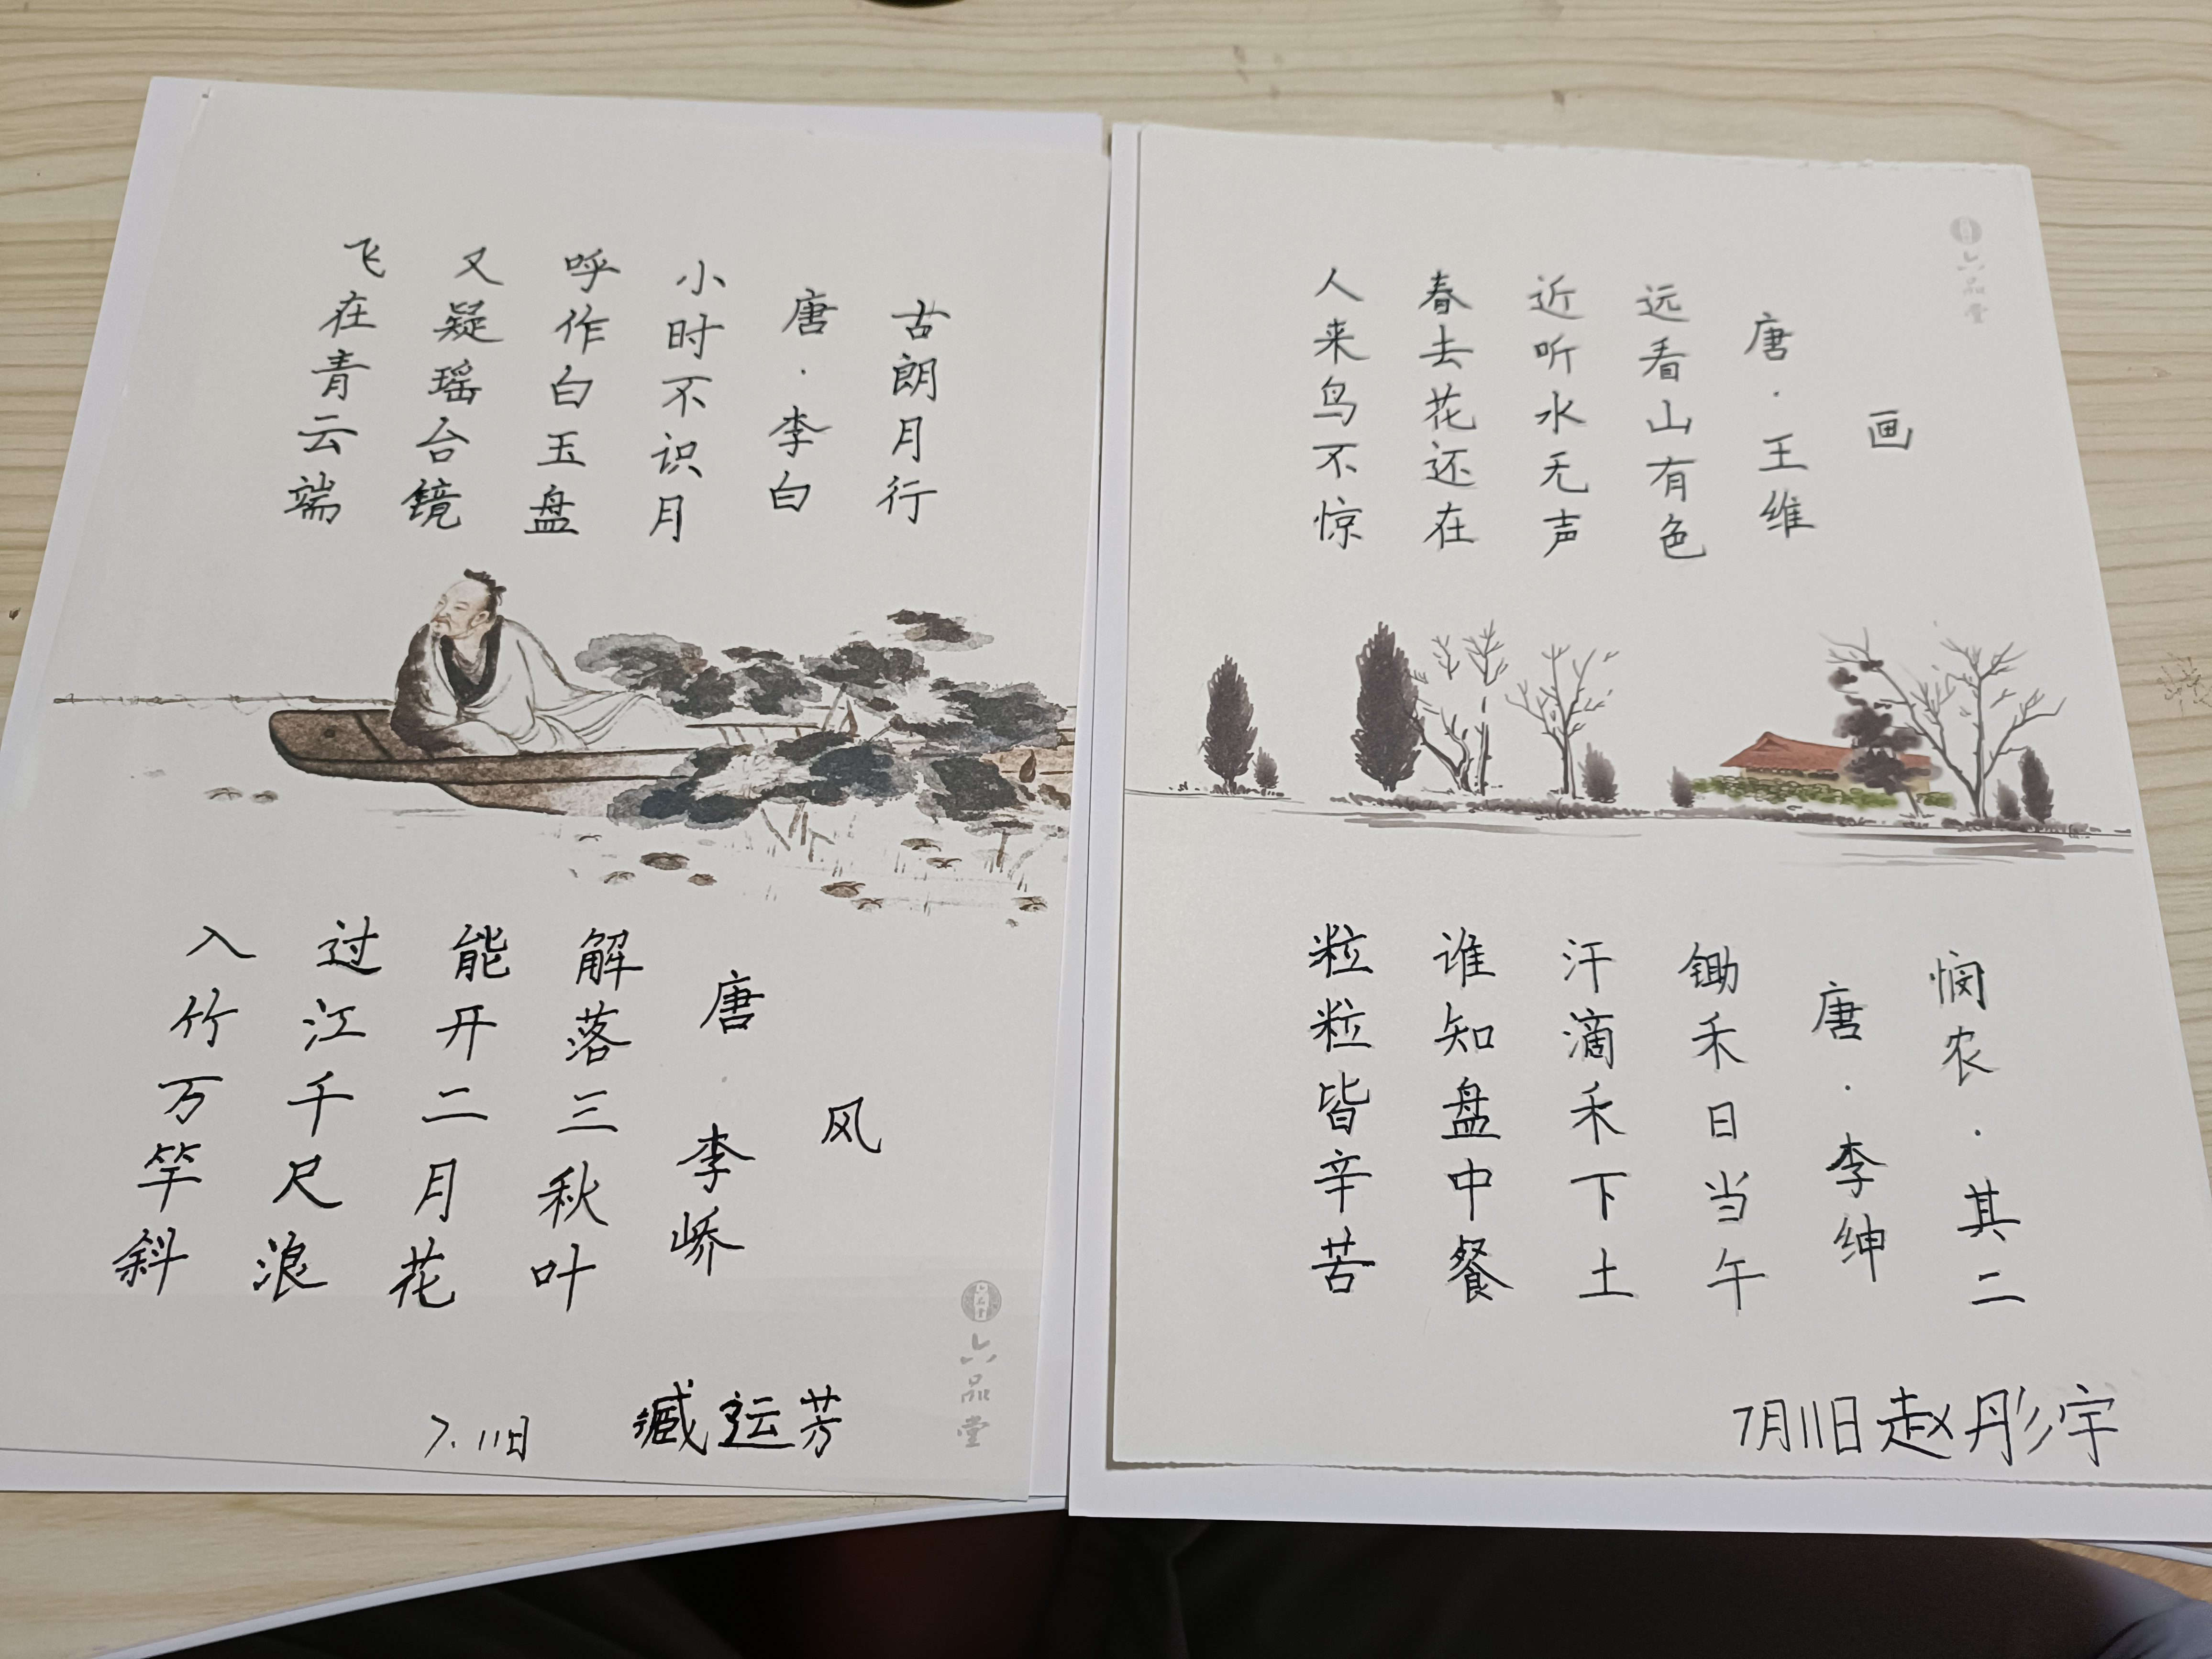 古朗月行
唐·李白
小时不识月
呼作白玉盘
又疑瑶台镜
飞在青云端
风
唐·李峤
解落三秋叶
能开二月花
过江千尺浪
入竹万竿斜
7.11日 臧运芳
六品堂
六品堂
画
唐·王维
远看山有色
近听水无声
春去花还在
人来鸟不惊
悯农·其二
唐·李绅
锄禾日当午
汗滴禾下土
谁知盘中餐
粒粒皆辛苦
7月11日赵彤宇